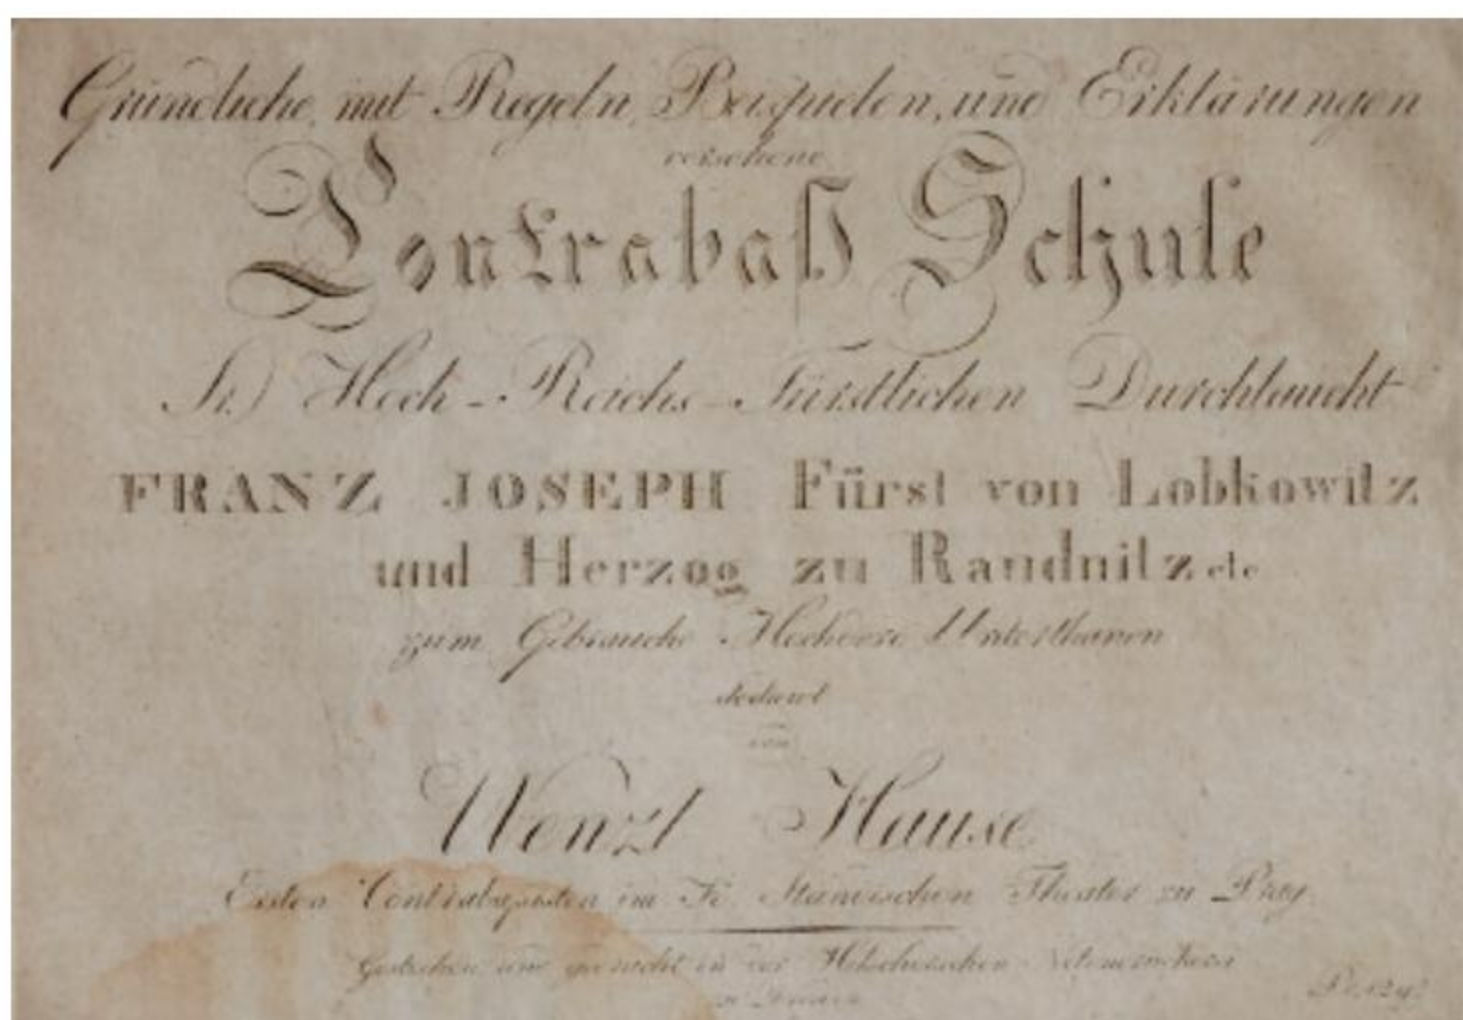 Gründliche, mit Regeln, Beispielen, und Erklärungen
versehene
Contrabaß Schule
Sr. Hoch-Reichs-Fürstlichen Durchlaucht
FRANZ JOSEPH Fürst von Lobkowitz
und Herzog zu Raudnitz etc
zum Gebrauche Hochdero Unterthanen
dedicirt
von
Wenzl Hause
Ersten Contrabassisten im K. Ständischen Theater zu Prag.
Gestochen und gemacht in der